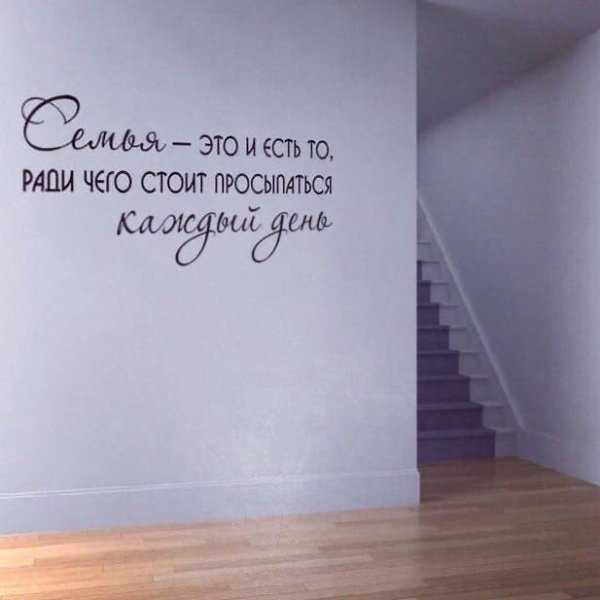 Семья – это и есть то,
ради чего стоит просыпаться
каждый день